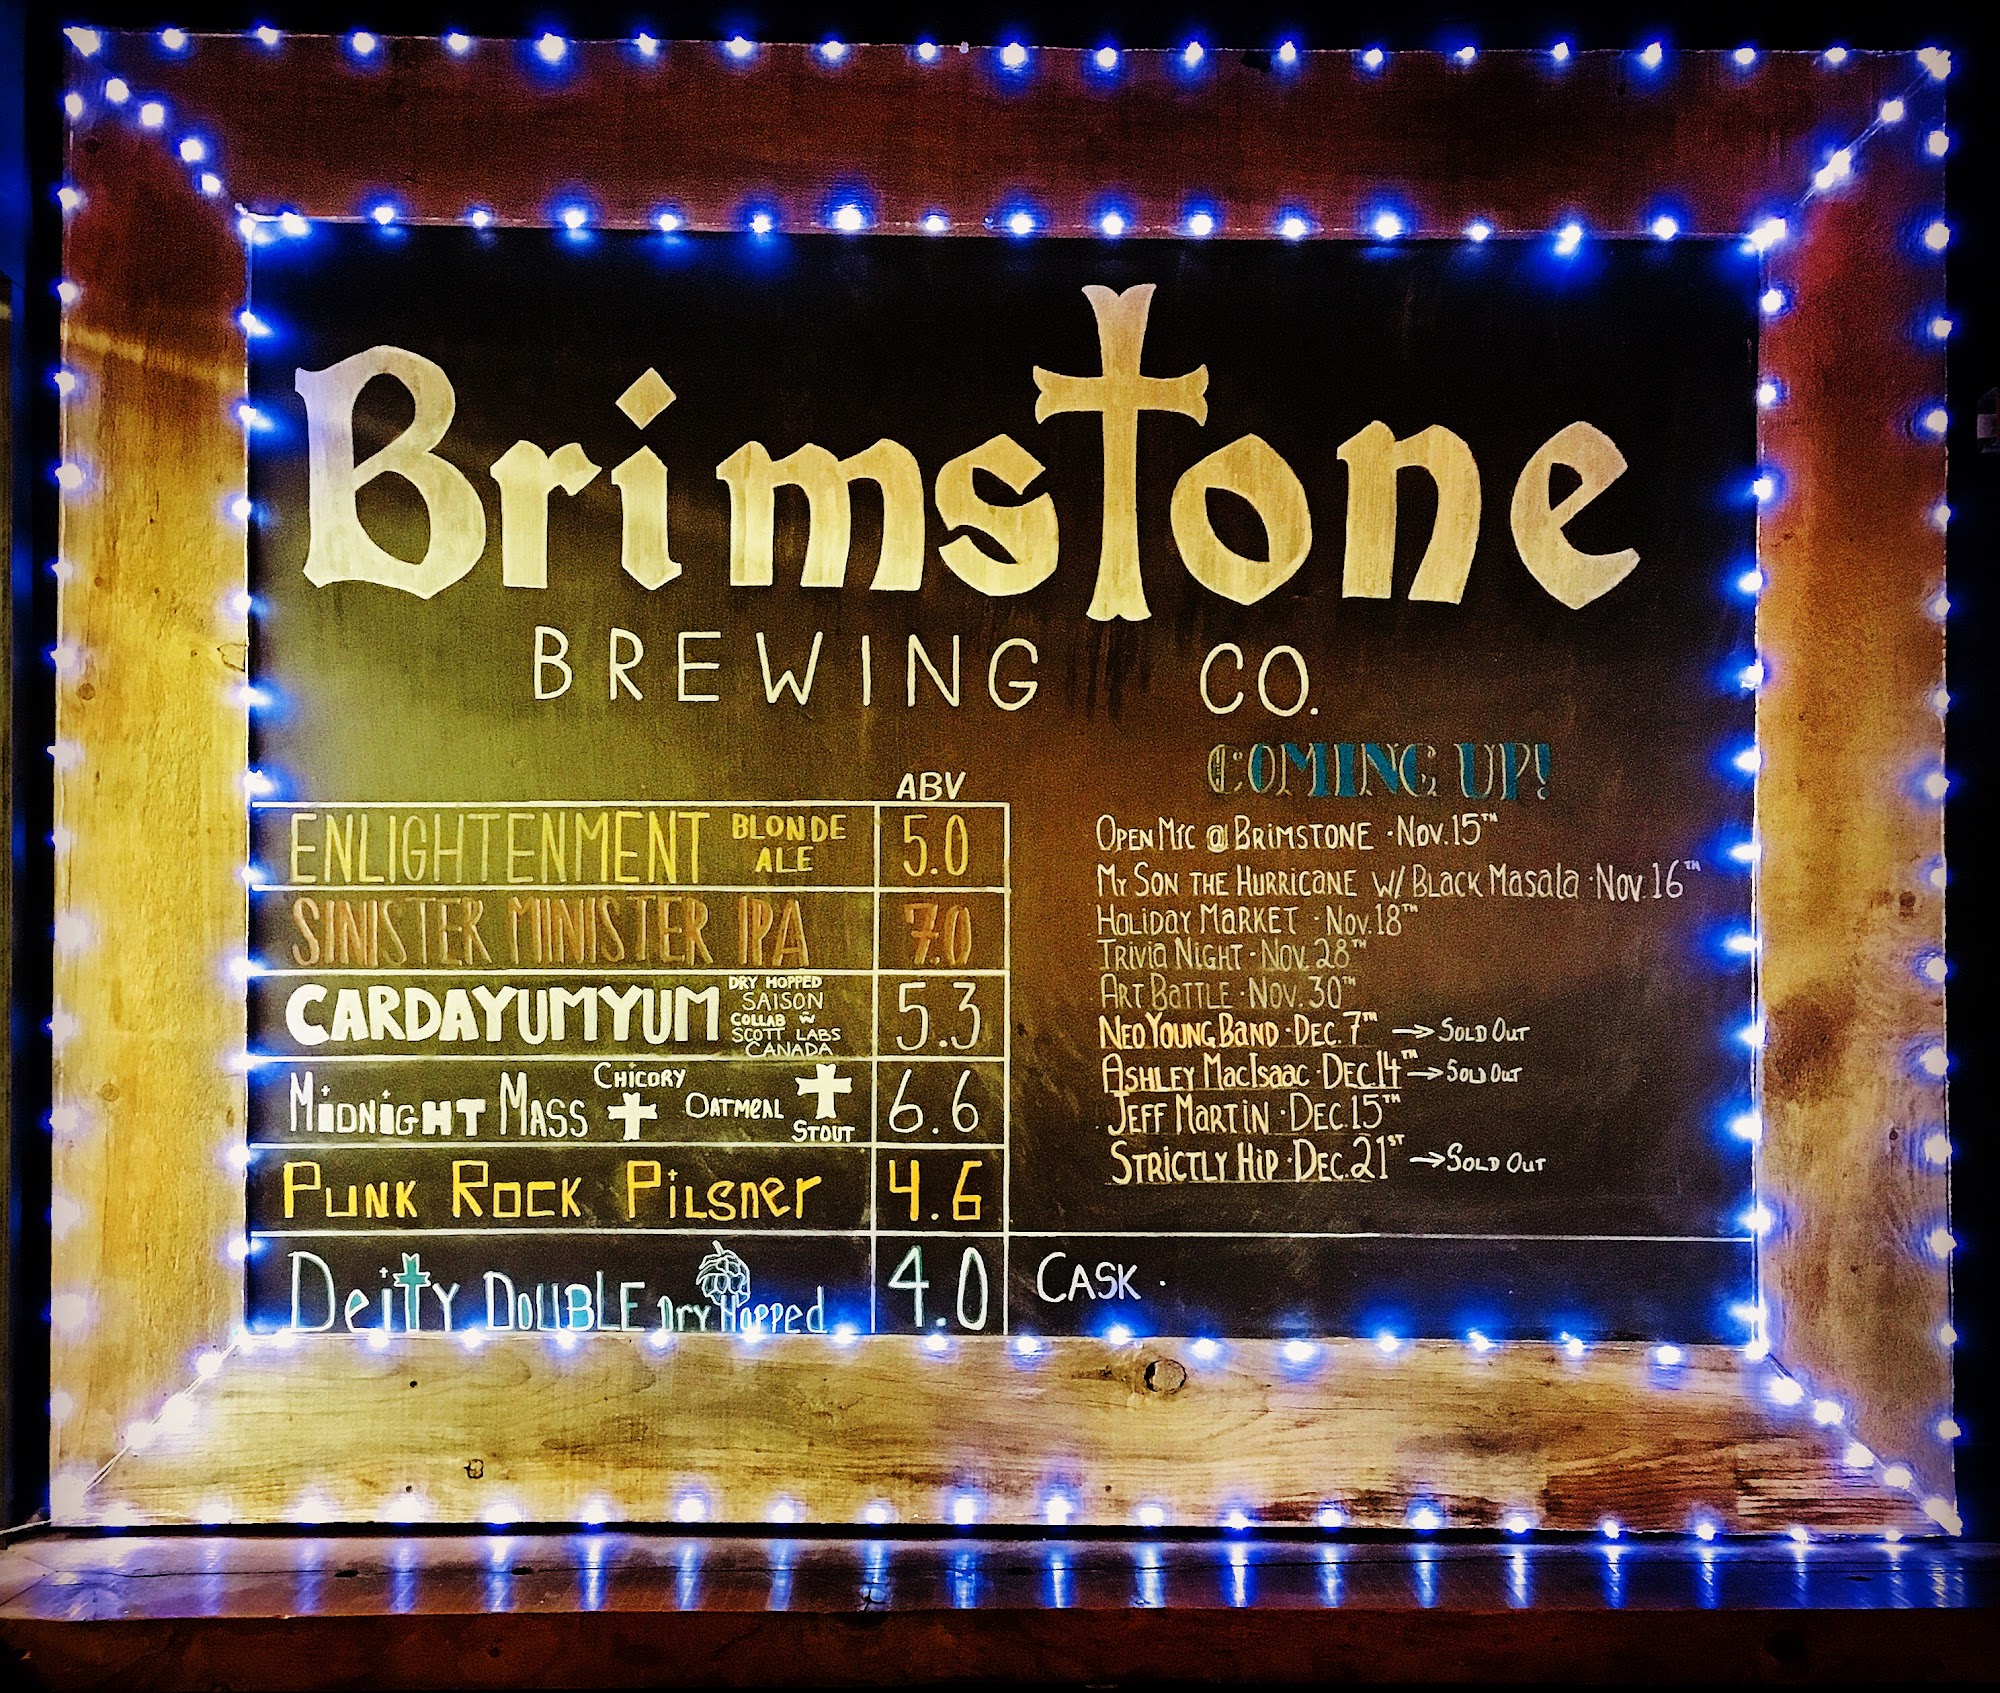 Brimstone
BREWING CO.
ABV
ENLIGHTENMENT BLONDE ALE 5.0
SINISTER MINISTER IPA 7.0
CARDAYUMYUM DRY HOPPED SAISON COLLAB W SCOTT LABS CANADA 5.3
MIDNIGHT MASS CHICORY OATMEAL STOUT 6.6
PUNK ROCK PILSNER 4.6
DEITY DOUBLE DRY HOPPED 4.0
COMING UP!
OPEN MIC @ BRIMSTONE · NOV. 15TH
MY SON THE HURRICANE W/ BLACK MASALA · NOV. 16TH
HOLIDAY MARKET · NOV. 18TH
TRIVIA NIGHT · NOV. 28TH
ART BATTLE · NOV. 30TH
NEO YOUNG BAND · DEC. 7TH → SOLD OUT
ASHLEY MACISAAC · DEC. 14TH → SOLD OUT
JEFF MARTIN · DEC. 15TH
STRICTLY HIP · DEC. 21ST → SOLD OUT
CASK ·